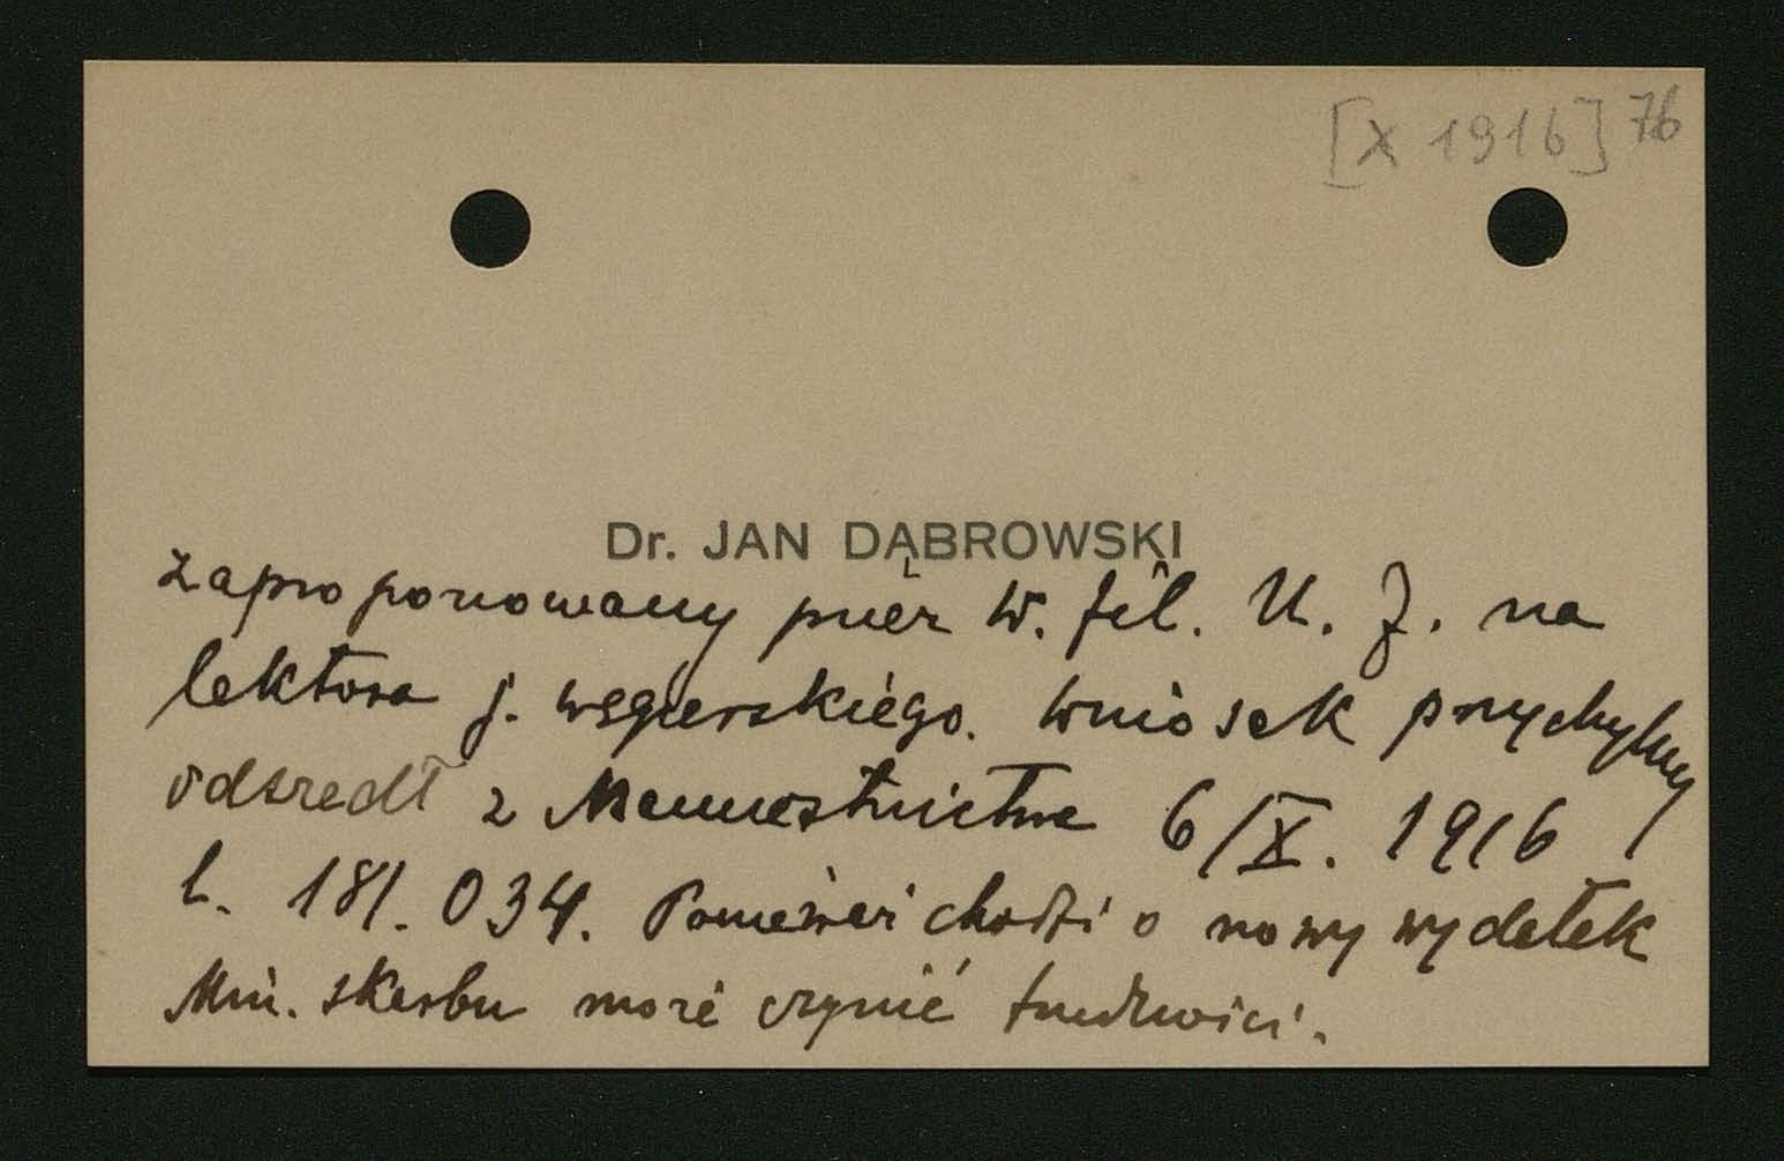 [X 1916] 76
Dr. JAN DĄBROWSKI
zaproponowany przez W. fil. U. J. na
lektora j. węgierskiego. Wniosek przychylny
odszedł z Namiestnictwa 6/X. 1916
L. 181.034. Ponieważ chodzi o nowy wydatek
Min. skarbu może czynić trudności.